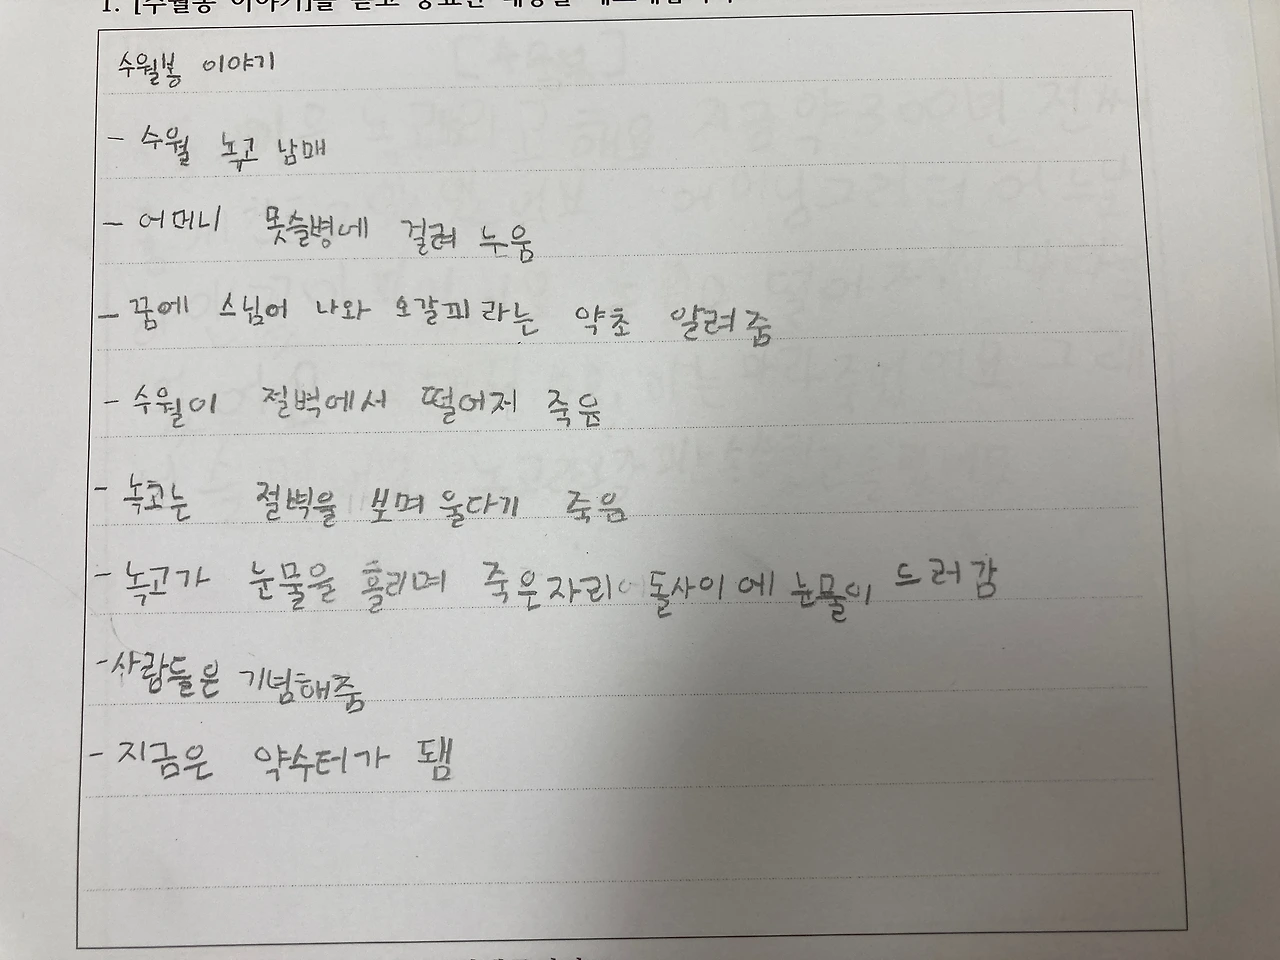 수월봉 이야기
- 수월 녹고 남매
- 어머니 몾슬병에 걸려 누움
- 꿈에 스님이 나와 오갈피 라는 약초 알려줌
- 수월이 절벽에서 떨어저 죽음
- 녹고는 절벽을 보며 울다가 죽음
- 녹고가 눈물을 흘리며 죽은자리에 돌사이에 눈물이 드러감
- 사람들은 기념해줌
- 지금은 약수터가 됌